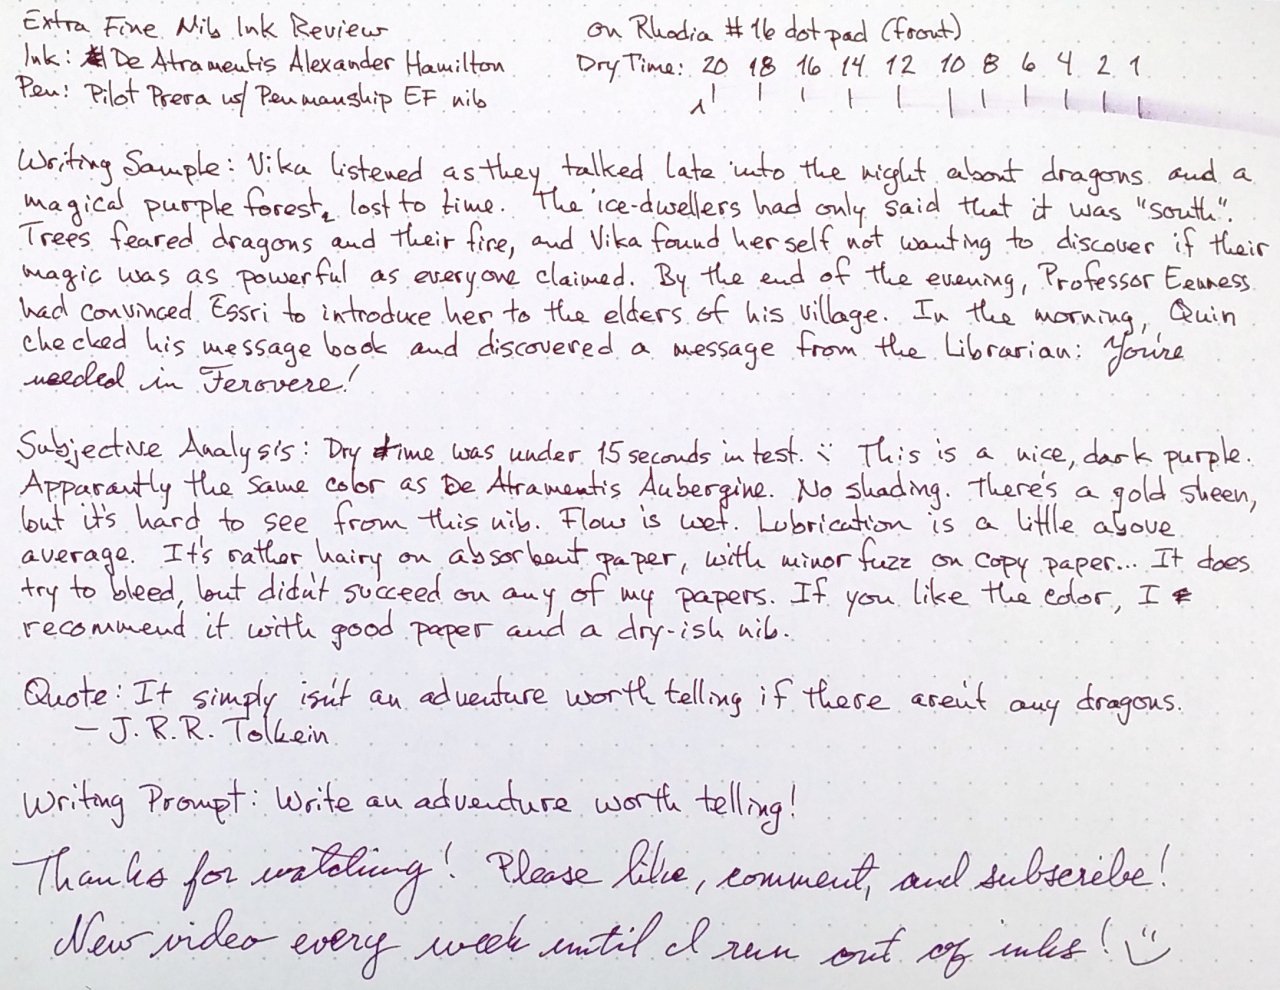 Extra Fine Nib Ink Review
on Rhodia #16 dot pad (front)
Ink: De Atramentis Alexander Hamilton
Dry Time: 20 18 16 14 12 10 8 6 4 2 1
Pen: Pilot Prera w/ Penmanship EF nib
Writing Sample: Vika listened as they talked late into the night about dragons and a
magical purple forest, lost to time. The ice-dwellers had only said that it was "south".
Trees feared dragons and their fire, and Vika found herself not wanting to discover if their
magic was as powerful as everyone claimed. By the end of the evening, Professor Eenness
had convinced Essri to introduce her to the elders of his village. In the morning, Quin
checked his message book and discovered a message from the Librarian: You're
needed in Ferovere!
Subjective Analysis: Dry time was under 15 seconds in test. :) This is a nice, dark purple.
Apparantly the same color as De Atramentis Aubergine. No shading. There's a gold sheen,
but it's hard to see from this nib. Flow is wet. Lubrication is a little above
average. It's rather hairy on absorbent paper, with minor fuzz on copy paper... It does
try to bleed, but didn't succeed on any of my papers. If you like the color, I
recommend it with good paper and a dry-ish nib.
Quote: It simply isn't an adventure worth telling if there aren't any dragons.
- J.R.R. Tolkein
Writing Prompt: Write an adventure worth telling!
Thanks for watching! Please like, comment, and subscribe!
New video every week until I run out of inks! :)